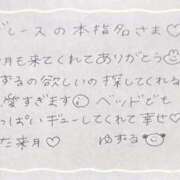 レースの本指名さま♡
月も来てくれてありがとう
ずるの欲しいの探してくれる
屋すぎます ベッドでも
っぱいギューしてくれて幸せ♡
た来月♡ ゆずる